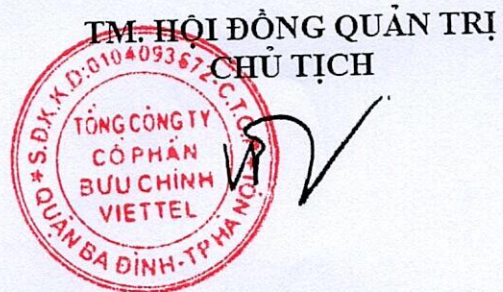 TM. HỘI ĐỒNG QUẢN TRỊ
CHỦ TỊCH
S.Đ.K.K.D:0104093672-C.T.C.P
TỔNG CÔNG TY
CỔ PHẦN
BƯU CHÍNH
VIETTEL
QUẬN BA ĐÌNH-TP HÀ NỘI